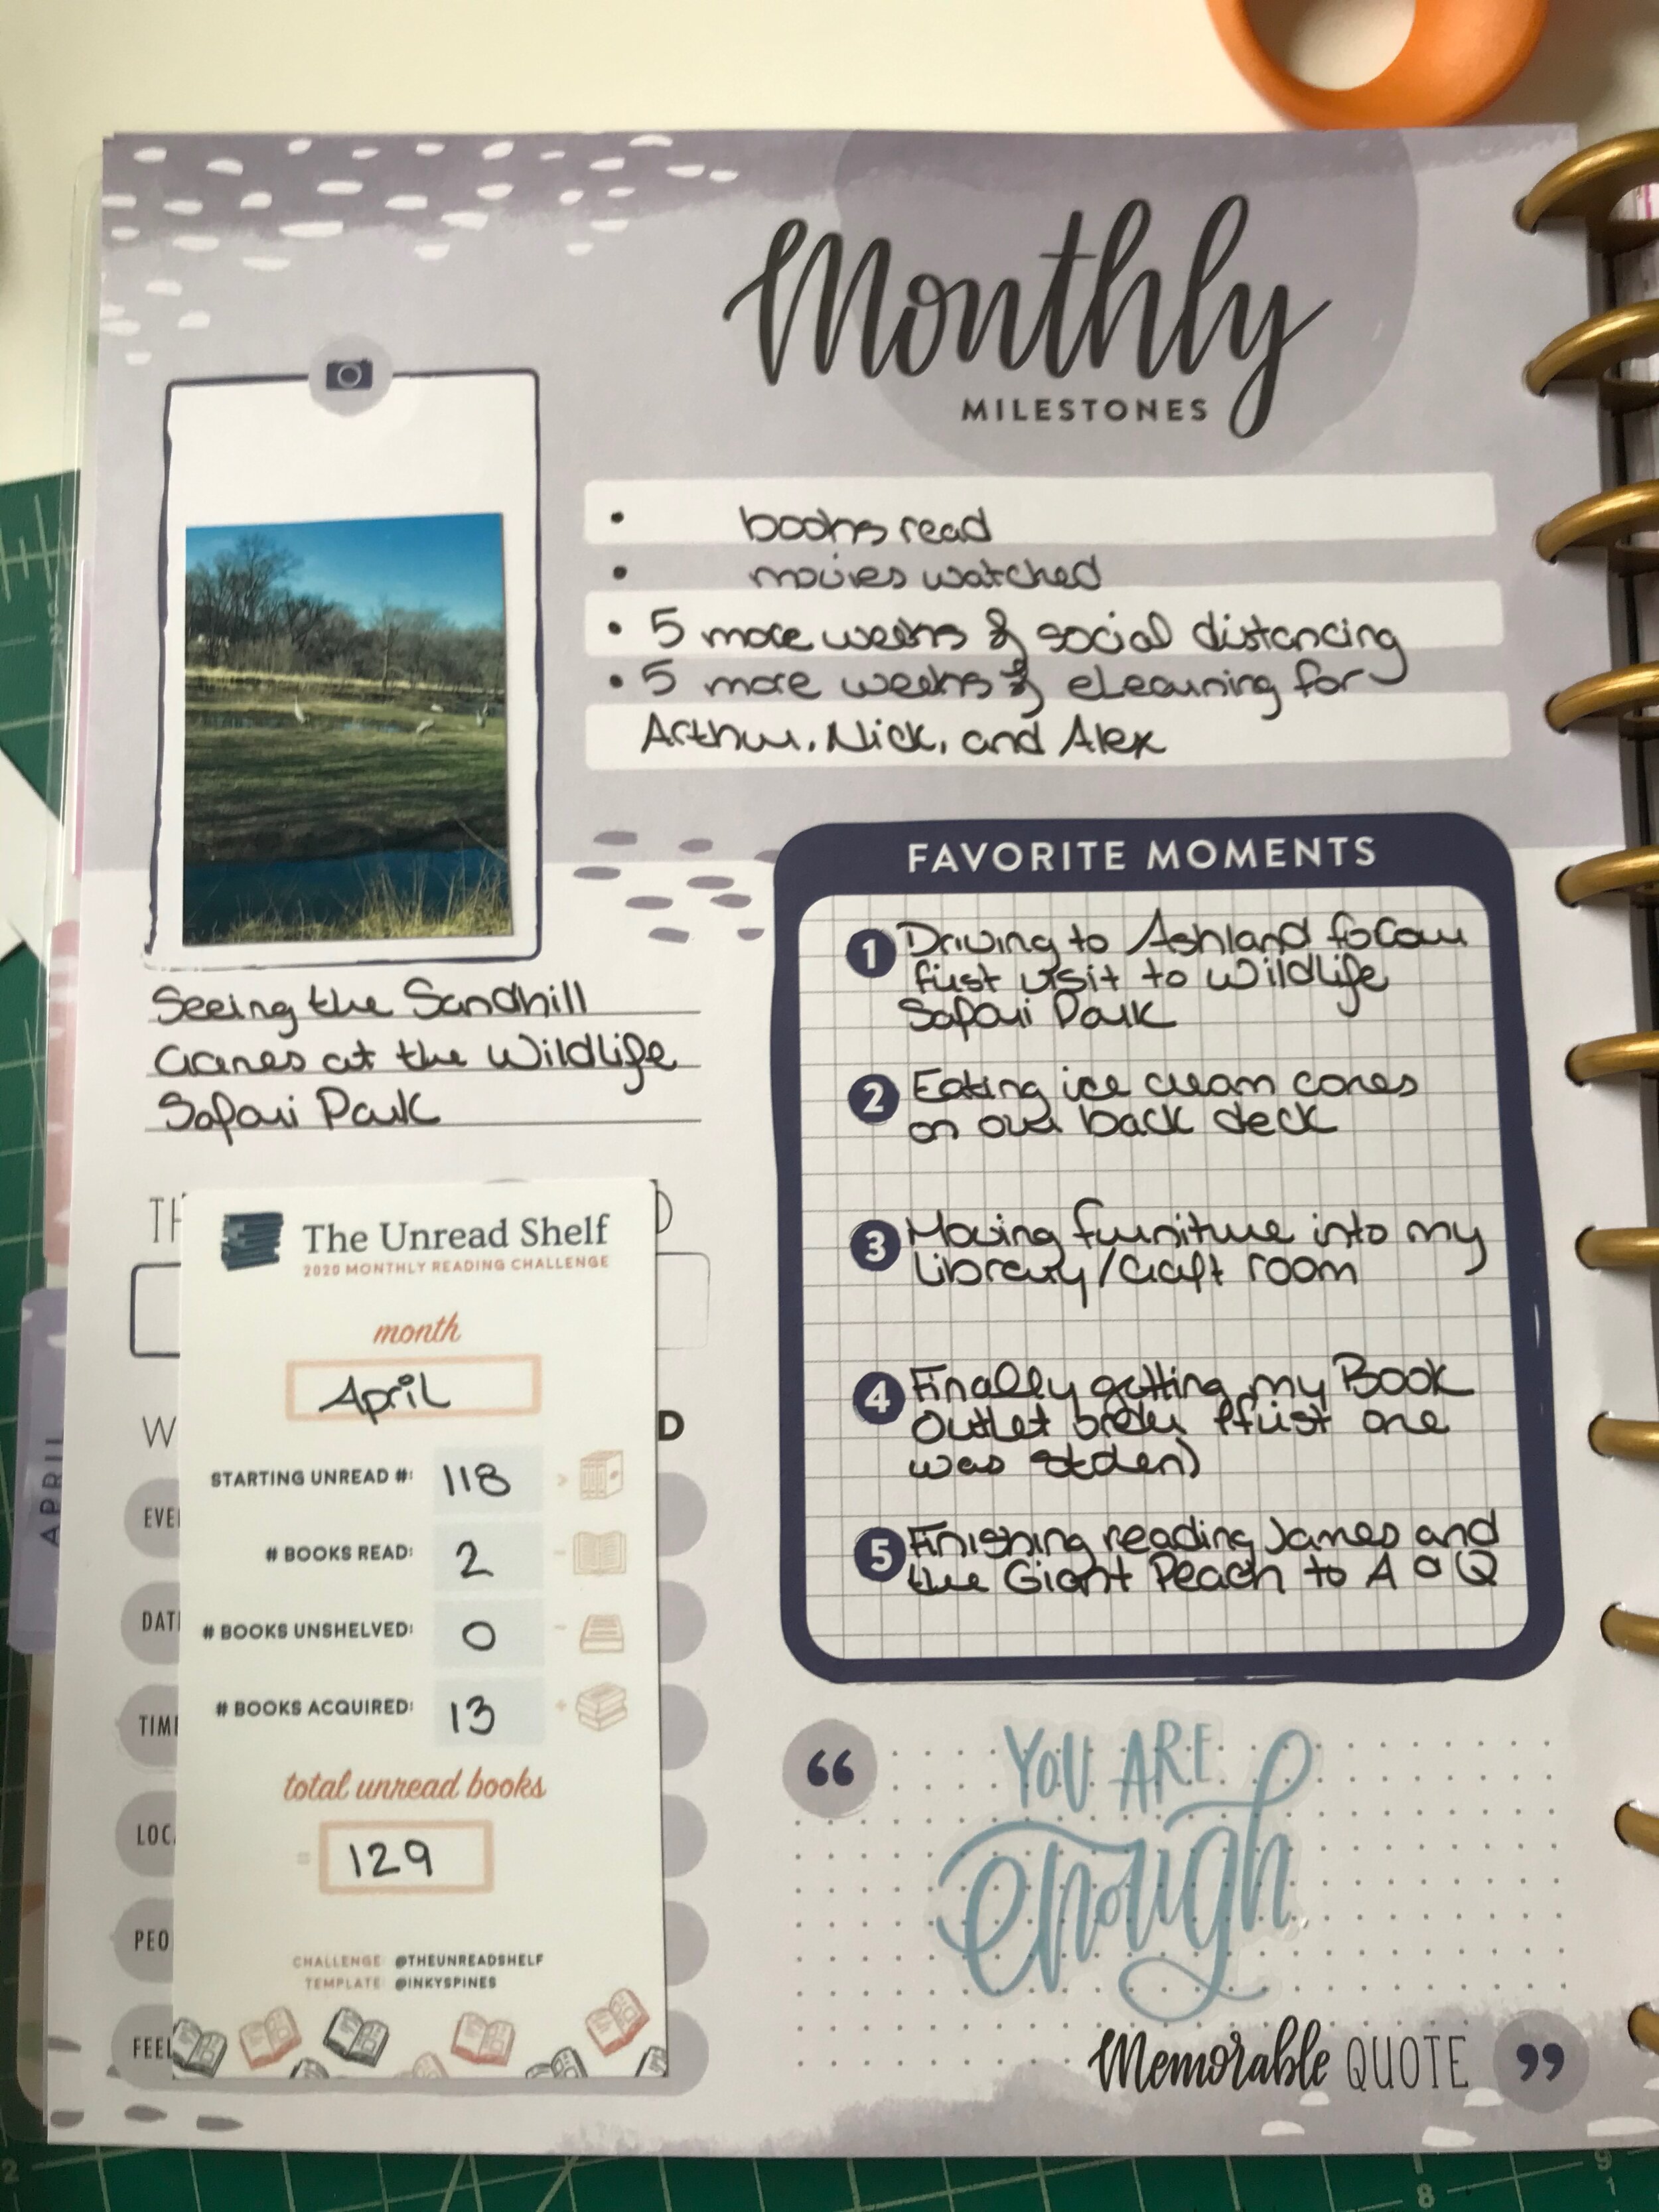 Monthly
MILESTONES
• books read
• movies watched
• 5 more weeks of social distancing
• 5 more weeks of eLearning for
Arthur, Nick, and Alex
Seeing the Sandhill
Cranes at the Wildlife
Safari Park
FAVORITE MOMENTS
1 Driving to Ashland for our
first visit to Wildlife
Safari Park
2 Eating ice cream cones
on our back deck
3 Moving furniture into my
Library/Craft room
4 Finally getting my Book
Outlet order (first one
was stolen)
5 Finishing reading James and
the Giant Peach to A & Q
TH
D
The Unread Shelf
2020 MONTHLY READING CHALLENGE
month
April
W
D
STARTING UNREAD #: 118
# BOOKS READ: 2
# BOOKS UNSHELVED: 0
# BOOKS ACQUIRED: 13
total unread books
= 129
CHALLENGE: @THEUNREADSHELF
TEMPLATE: @INKYSPINES
APRIL
EVE
DATE
TIME
LOC
PEO
FEEL
“ YOU ARE
enough
Memorable QUOTE ”
8
9